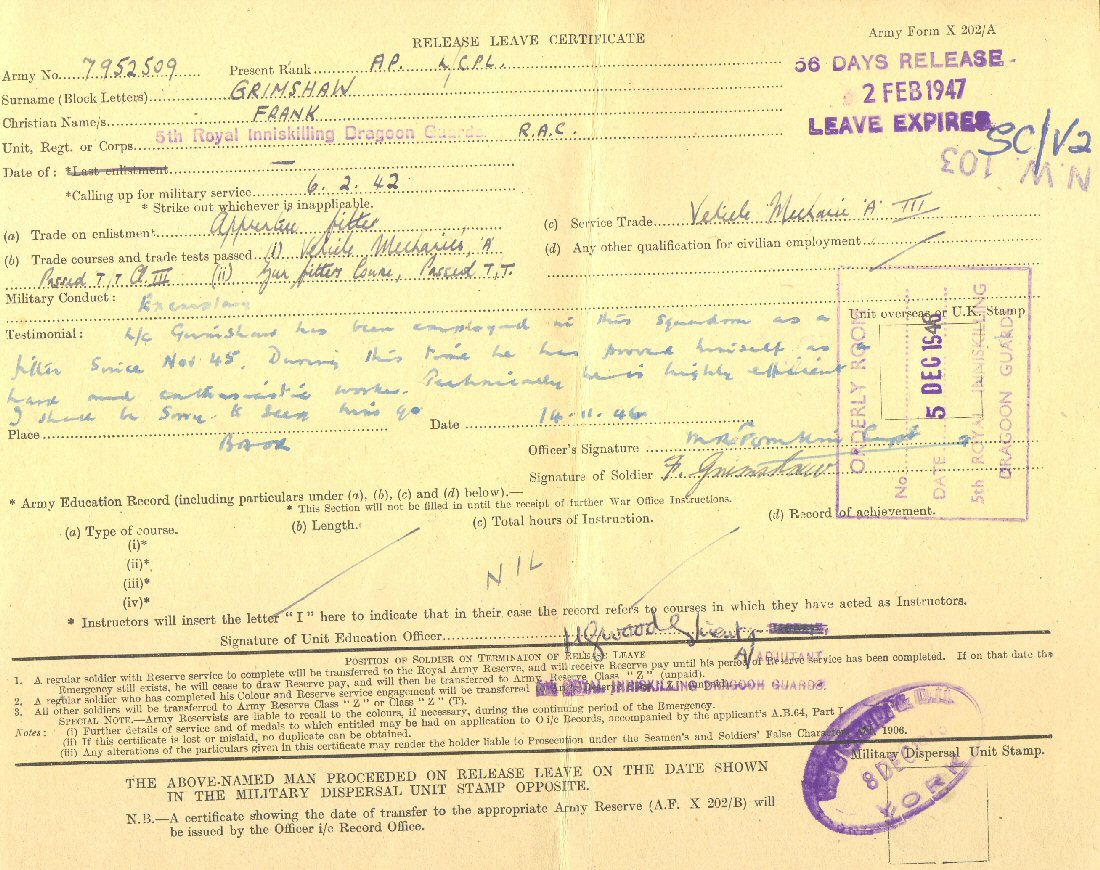 RELEASE LEAVE CERTIFICATE
Army Form X 202/A
Army No. 7952509 Present Rank AP. L/CPL.
56 DAYS RELEASE
2 FEB 1947
LEAVE EXPIRES
Surname (Block Letters) GRIMSHAW
Christian Name/s FRANK
Unit, Regt. or Corps 5th Royal Inniskilling Dragoon Guards. R.A.C.
SC/V2
N.W. 103
Date of : *Last enlistment
*Calling up for military service 6. 2. 42
* Strike out whichever is inapplicable.
(a) Trade on enlistment Apprentice fitter
(c) Service Trade Vehicle Mechanic 'A' III
(b) Trade courses and trade tests passed (i) Vehicle Mechanics, 'A'
(d) Any other qualification for civilian employment
Passed T,T Cl. III (ii) Gun fitters Course, Passed T,T.
Military Conduct : Exemplary
Unit overseas or U.K. Stamp
Testimonial : L/c Grimshaw has been employed in this Squadron as a
fitter since Nov 45. During this time he has proved himself as a
hard and enthusiastic worker. Technically he is highly efficient
I shall be sorry to see him go
Place BAOR Date 14-11-46
Officer's Signature Capt
Signature of Soldier F. Grimshaw
ORDERLY ROOM
No.
DATE 5 DEC 1946
5th ROYAL INNISKILLING
DRAGOON GUARDS
* Army Education Record (including particulars under (a), (b), (c) and (d) below).—
* This Section will not be filled in until the receipt of further War Office Instructions.
(a) Type of course. (b) Length. (c) Total hours of Instruction. (d) Record of achievement.
(i)*
(ii)*
(iii)*
(iv)*
NIL
* Instructors will insert the letter "I" here to indicate that in their case the record refers to courses in which they have acted as Instructors.
Signature of Unit Education Officer Lieut
A/ ADJUTANT
POSITION OF SOLDIER ON TERMINATION OF RELEASE LEAVE
1. A regular soldier with Reserve service to complete will be transferred to the Royal Army Reserve, and will receive Reserve pay until his period of Reserve service has been completed. If on that date the
Emergency still exists, he will cease to draw Reserve pay, and will then be transferred to Army Reserve Class "Z" (unpaid).
2. A regular soldier who has completed his Colour and Reserve service engagement will be transferred
ROYAL INNISKILLING DRAGOON GUARDS.
3. All other soldiers will be transferred to Army Reserve Class "Z" or Class "Z" (T).
SPECIAL NOTE.—Army Reservists are liable to recall to the colours, if necessary, during the continuing period of the Emergency.
Notes : (i) Further details of service and of medals to which entitled may be had on application to O i/c Records, accompanied by the applicant's A.B.64, Part I
(ii) If this certificate is lost or mislaid, no duplicate can be obtained.
(iii) Any alterations of the particulars given in this certificate may render the holder liable to Prosecution under the Seamen's and Soldiers' False Characters 1906.
Military Dispersal Unit Stamp.
8 DEC
YORK
THE ABOVE-NAMED MAN PROCEEDED ON RELEASE LEAVE ON THE DATE SHOWN
IN THE MILITARY DISPERSAL UNIT STAMP OPPOSITE.
N.B.—A certificate showing the date of transfer to the appropriate Army Reserve (A.F. X 202/B) will
be issued by the Officer i/c Record Office.